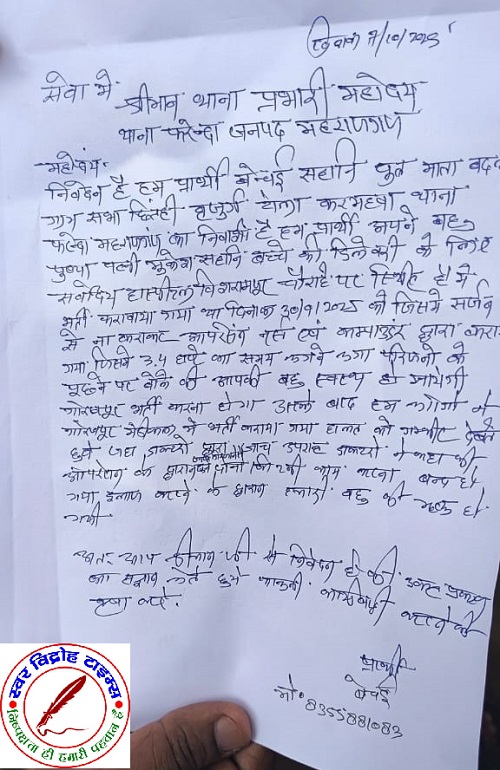 दिनांक 7/10/2025
सेवा में
श्रीमान थाना प्रभारी महोदय
थाना फरेन्दा जनपद महराजगंज
महोदय
निवेदन है हम प्रार्थी बेचई सहानि पुत्र माता बदल
ग्राम सभा बुजुर्ग टोला करमहवा थाना
फरेन्दा महराजगंज का निवासी है हम प्रार्थी अपने बहु
पुष्पा पत्नी मुकेश सहानि बच्चे की डिलेवरी के लिए
सर्वोदय हास्पीटल चौराहे पर स्थित है में
भर्ती कराया गया था दिनांक 30/9/2025 को जिसमें सर्जन
से ना कराकर आपरेशन नर्स एवं कम्पाउंडर द्वारा कराया
गया जिसमें 3,4 घण्टे का समय लगने लगा परिजनो के
पूछने पर बोले की आपकी बहु स्वस्थ हो जायेगी
गोरखपुर भर्ती करना होगा उसके बाद हम लोगों ने
गोरखपुर मेडीकल में भर्ती कराया गया हालत को गम्भीर देखते
हुये जहा डाक्टरो द्वारा जांच उपरान्त डाक्टरो ने कहा की
आपरेशन के दौरान दोनो किडनी काम करना बन्द हो
गया इलाज करने के दौरान हमारी बहु की मृत्यु हो
गयी
अतः आप श्रीमान जी से निवेदन है की उक्त प्रकरण
का संज्ञान लेते हुये कानूनी कार्यवाही करने की
कृपा करे.
प्रार्थी
बेचई
मो० 8355881083
स्वर विद्रोह टाइम्स
निष्पक्षता ही हमारी पहचान है